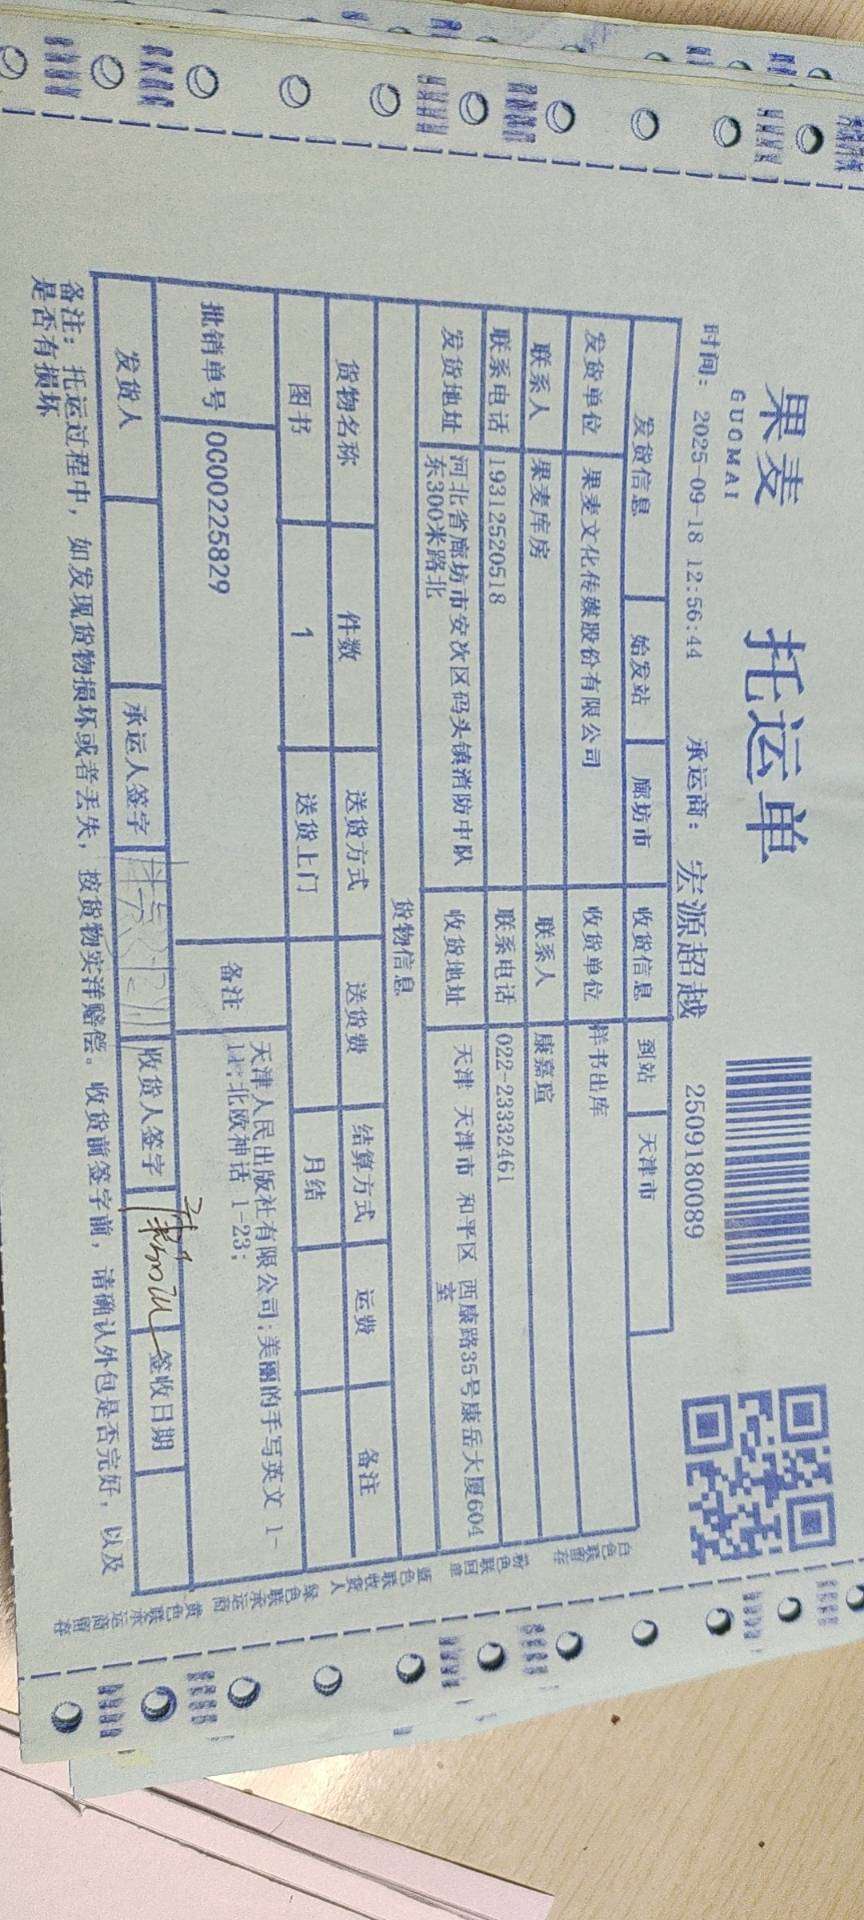 果麦
GUOMAI
托运单
时间: 2025-09-18 12:56:44 承运商: 宏源超越 2509180089
发货信息 始发站 廊坊市 收货信息 到站 天津市
发货单位 果麦文化传媒股份有限公司 收货单位 样书出库
联系人 果麦库房 联系人 康嘉瑄
联系电话 19312520518 联系电话 022-23332461
发货地址 河北省廊坊市安次区码头镇消防中队
东300米路北
收货地址 天津 天津市 和平区 西康路35号康岳大厦604
室
货物信息
货物名称 件数 送货方式 送货费 结算方式 运费 备注
图书 1 送货上门 月结
批销单号 0C00225829 备注 天津人民出版社有限公司;美丽的手写英文 1-
北欧神话 1-23;
发货人 承运人签字 收货人签字 签收日期
备注: 托运过程中, 如发现货物损坏或者丢失, 按货物实洋赔偿。收货前签字前, 请确认外包是否完好, 以及
是否有损坏
白色联留存
粉色联回单
蓝色联收货人
绿色联承运商
黄色联承运商留存